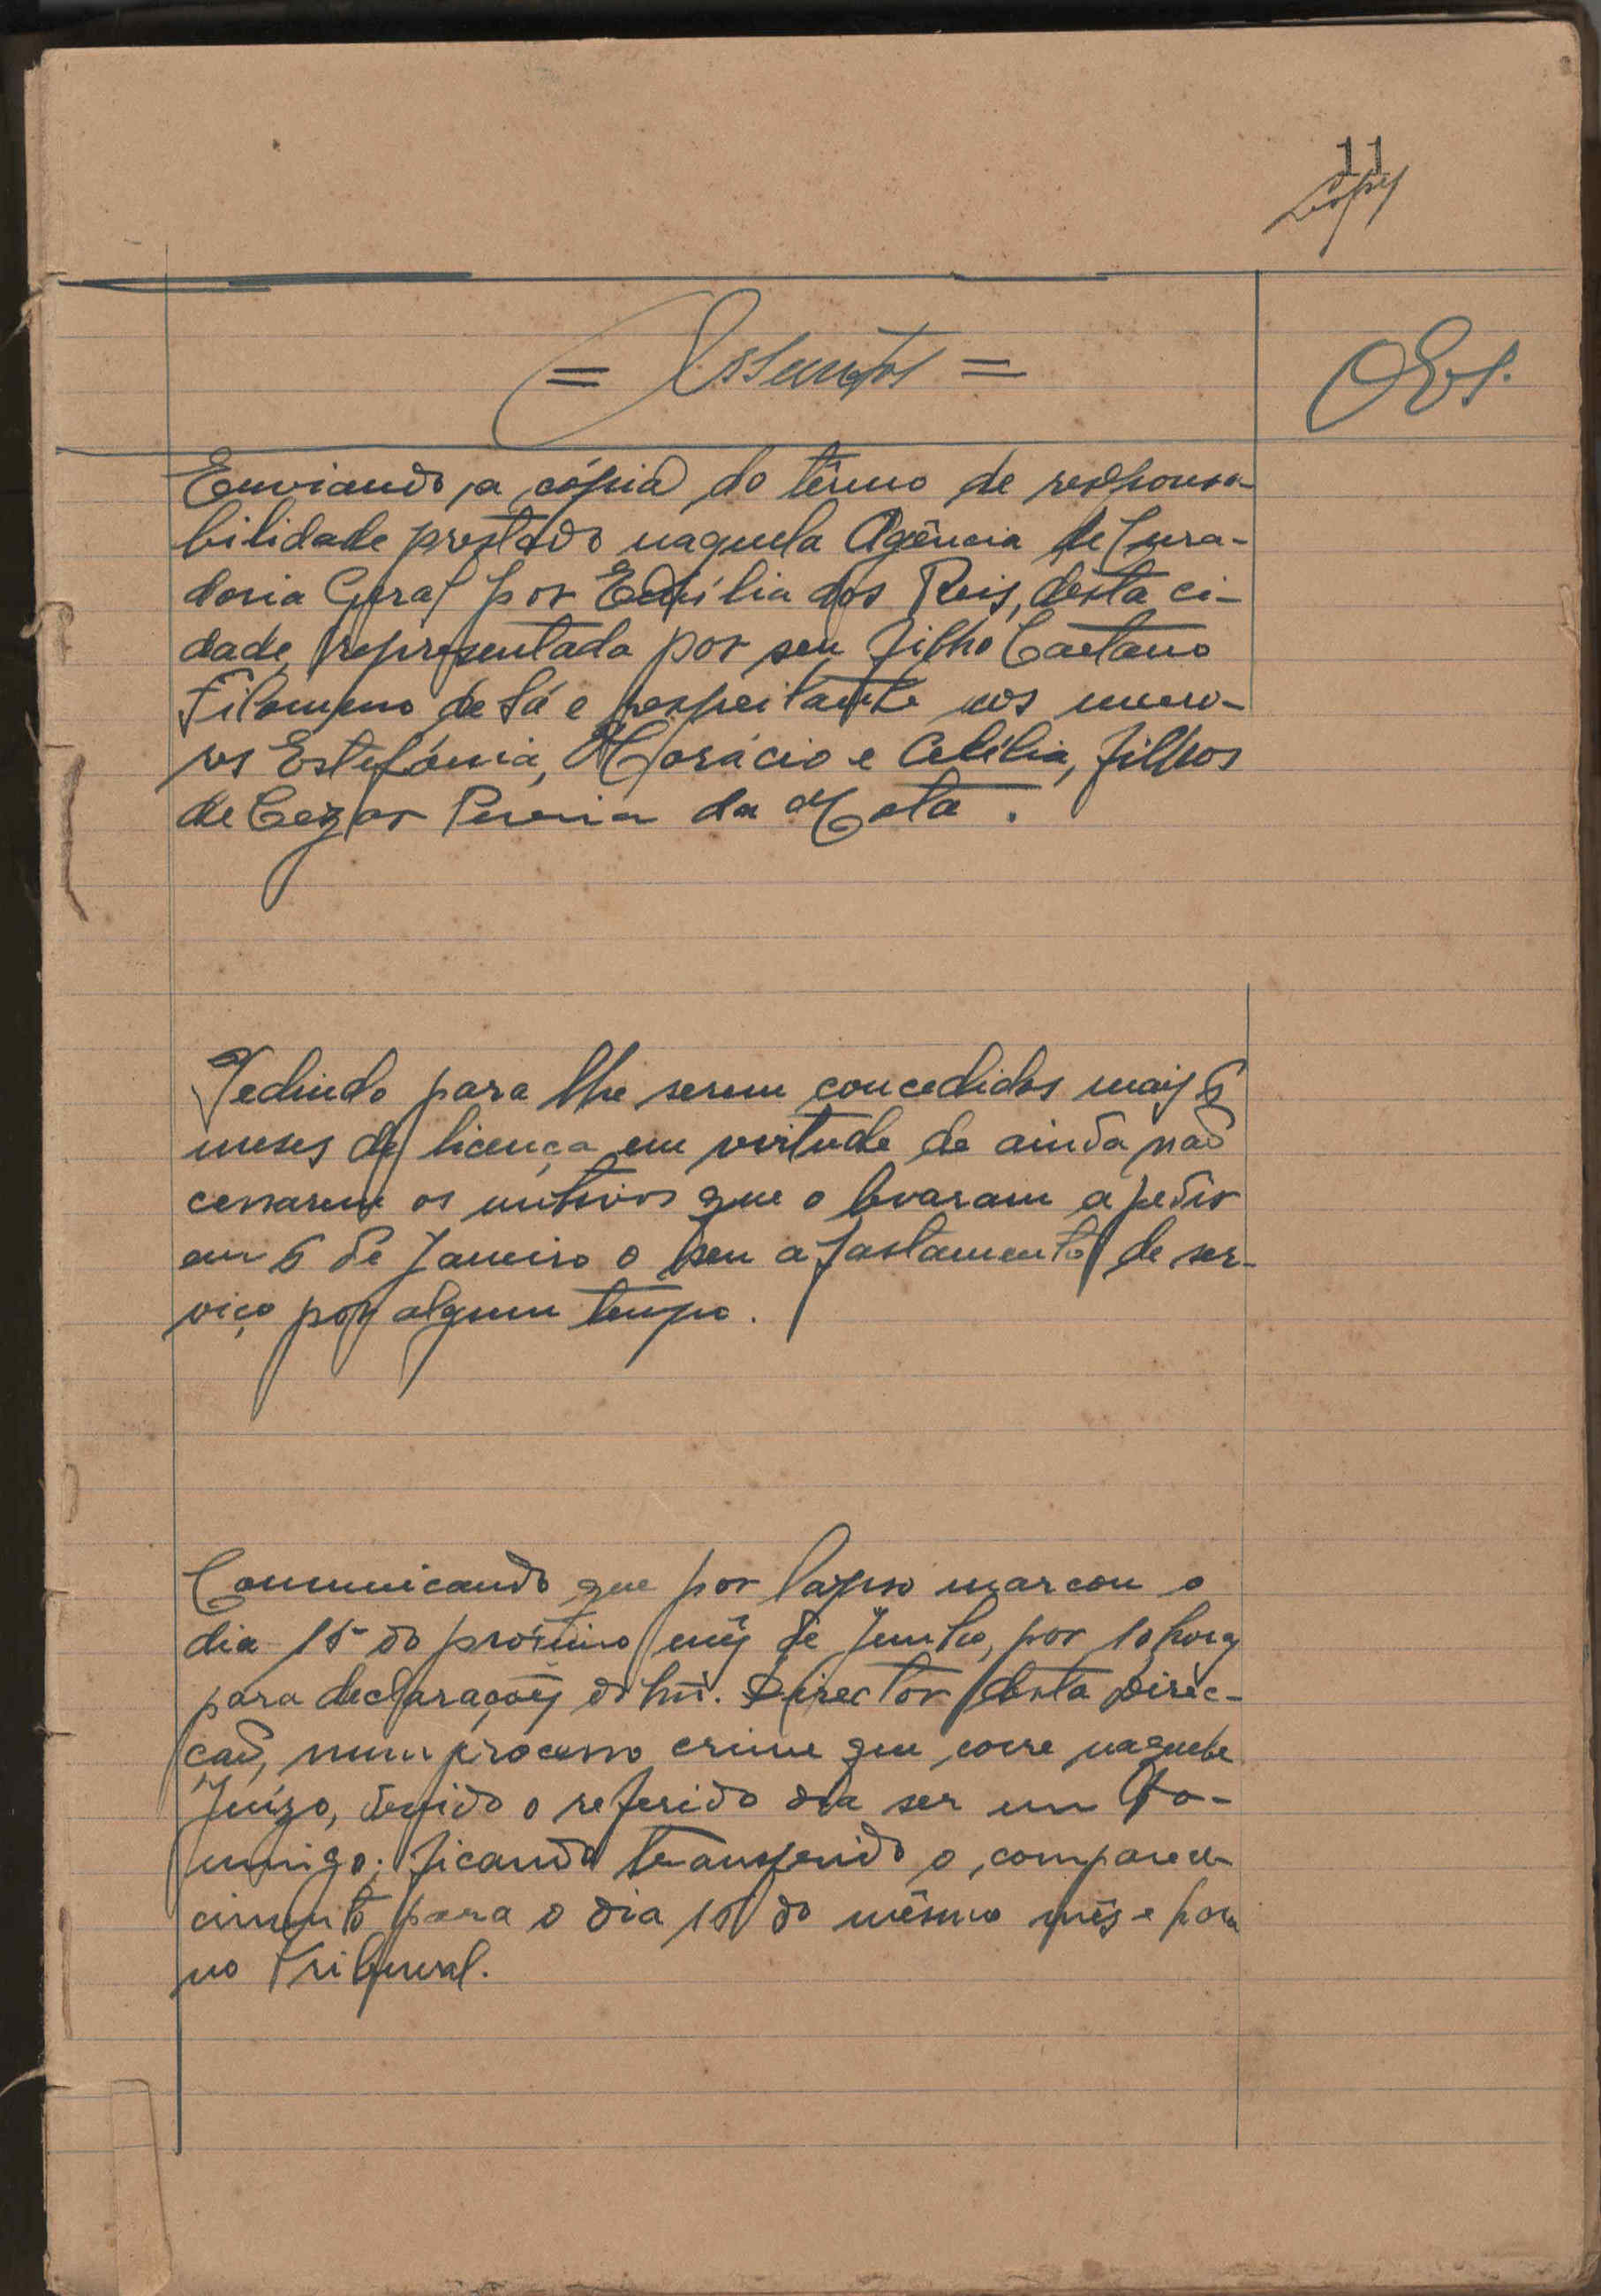 11
= Assuntos =
Obs.
Enviando a cópia do têrmo de responsa-
bilidade prestado naquela Agência de Cura-
doria Geral por Edília dos Reis, desta ci-
dade, representada por seu filho Caetano
Filomeno de Sá e respeitante aos meno-
res Estefánia, Horácio e Celília, filhos
de Cezar Pereira da Mota.
Pedindo para lhe serem concedidos mais 6
meses de licença em virtude de ainda não
cessarem os motivos que o levaram a pedir
em 6 de Janeiro o seu afastamento de ser-
viço por algum tempo.
Comunicando que por lapso marcou o
dia 15 do próximo mês de Junho, por 10 horas
para declarações do Snr. Director desta Direc-
ção, num processo crime que corre naquele
Juízo, devido o referido dia ser um Do-
mingo; ficando transferido o compare-
cimento para o dia 16 do mêsmo mês e hora
no Tribunal.